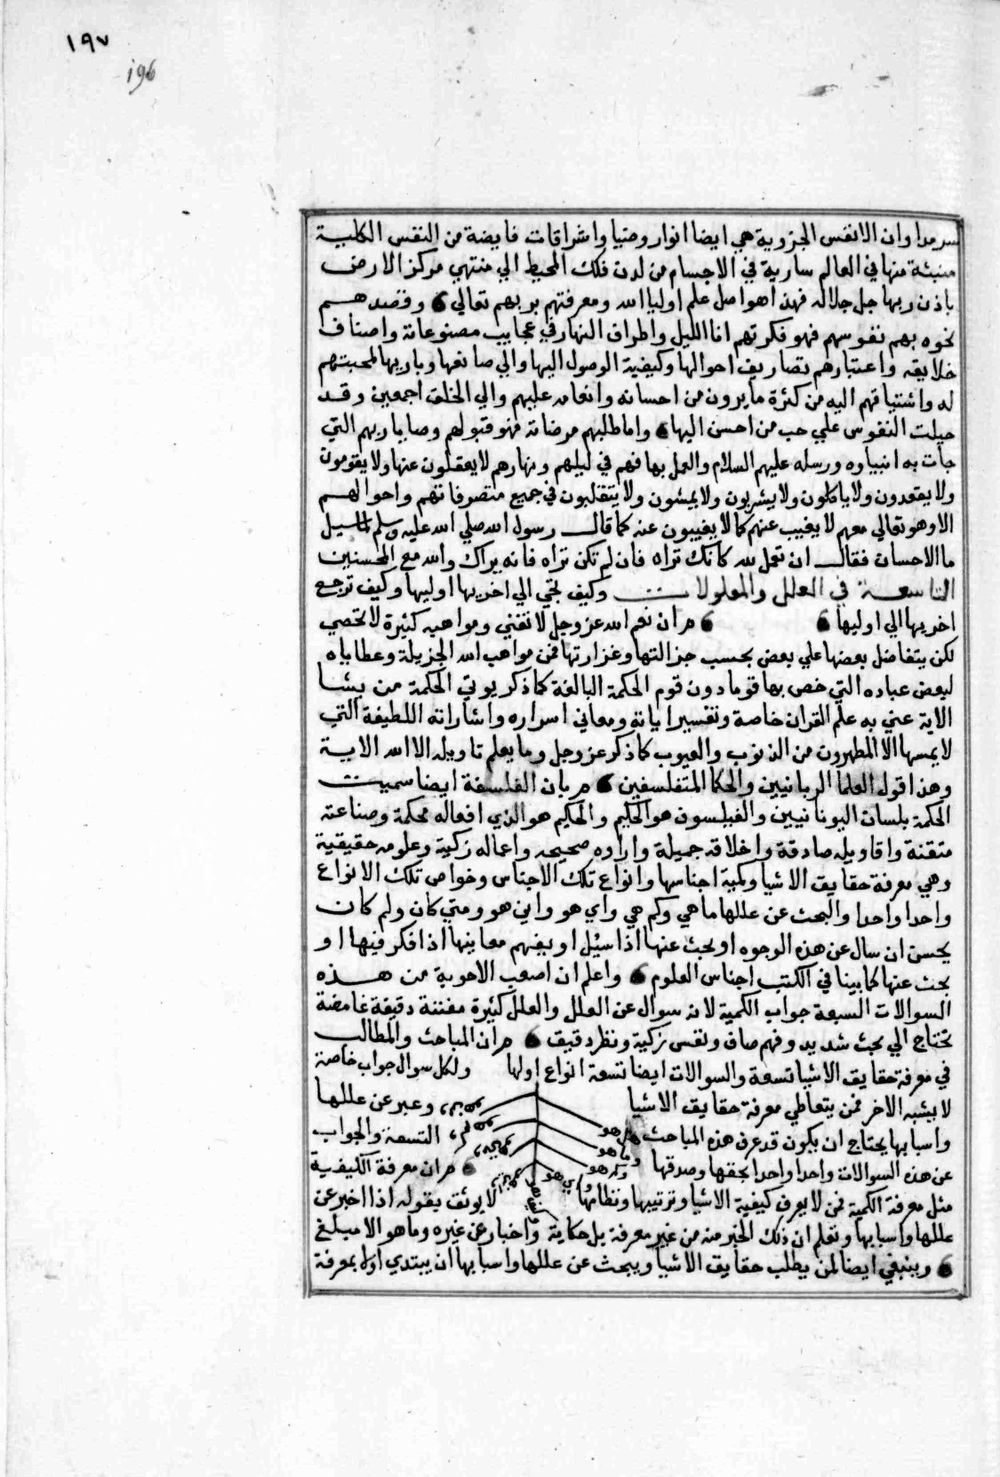 ١٩٧
196
سرمدا وان الانفس الجزوية هي ايضا انوار وضيا واشراقات فايضة من النفس الكلية
منبثة منها في العالم سارية في الاجسام من لدن فلك المحيط الي منتهي مركز الارض
باذن ربها جل جلاله فهذا هو اصل علم اوليا الله ومعرفتهم بربهم تعالي وقصدهم
نحوه بهم نفوسهم فهو فكرتهم انا الليل واطراف النهار في عجايب مصنوعاته واصناف
خلايقه واعتبارهم تصاريف احوالها وكيفية الوصول اليها والي صانعها وباريها لمحبتهم
له واشتياقهم اليه من كثرة ما يرون من احسانه وانعامه عليهم والي الخلق اجمعين وقد
جبلت النفوس علي حب من احسن اليها واما طلبهم مرضاته فهو قبولهم وصايا ربهم التي
جات به انبياوه ورسله عليهم السلام والعمل بها فهم في ليلهم ونهارهم لا يعقلون عنها ولا يقومون
ولا يقعدون ولا ياكلون ولا يشربون ولا يمشون ولا يتقلبون في جميع متصرفاتهم واحوالهم
الا وهو تعالي معهم لا يغيب عنهم كما لا يغيبون عنه كما قال رسول الله صلي الله عليه وسلم لما سيل
ما الاحسان فقال ان تعمل لله كانك تراه فان لم تكن تراه فانه يراك والله مع المحسنين
التاسعة في العلل والمعلولات وكيف تجي الي اخريها اوليها وكيف ترجع
اخريها الي اوليها مر ان نعم الله عز وجل لا تفني ومواهبه كثيرة لا تحصي
لكن يتفاضل بعضها علي بعض بحسب جزالتها وغزارتها فمن مواهب الله الجزيلة وعطاياه
لبعض عباده التي خص بها قوما دون قوم الحكمة البالغة كما ذكر يوتي الحكمة من يشا
الاية عني به علم القران خاصة وتفسير اياته ومعاني اسراره واشاراته اللطيفة التي
لا يمسها الا المطهرون من الذنوب والعيوب كما ذكر عز وجل وما يعلم تاويله الا الله الاية
وهذا قول العلما الربانيين والحكما المتفلسفين مر بان الفلسفة ايضا سميت
الحكمة بلسان اليونانيين والفيلسون هو الحكيم والحكيم هو الذي افعاله محكمة وصناعته
متقنة واقاويله صادقة واخلاقه جميلة واراوه صحيحه واعماله زكية وعلومه حقيقية
وهي معرفة حقايق الاشيا وكمية اجناسها وانواع تلك الاجناس وخواص تلك الانواع
واحدا واحدا والبحث عن عللها ما هي وكم هي واي هو واين هو ومتي كان ولم كان
يحسن ان سال عن هذه الوجوه او بحث عنها اذا سيل او يفهم معاينها اذا فكر فيها او
بحث عنها كما بينا في الكتب اجناس العلوم واعلم ان اصعب الاجوبة من هذه
السوالات السبعة جواب الكمية لانه سوال عن العلل والعلل كثيرة مفننة دقيقة غامضة
تحتاج الي بحث شديد وفهم صاف ونفس زكية ونظر دقيق مر ان المباحث والمطالب
في معرفة حقايق الاشيا تسعة والسوالات ايضا تسعة انواع اولها ولكل سوال جواب خاصة
لا يشبه الاخر فمن يتعاطي معرفة حقايق الاشيا وعبر عن عللها
واسبابها يحتاج ان يكون قد عرف هذه المباحث هل هو التسعة والجواب
عن هذه السوالات واحدا واحدا بحقها وصدقها وما هو وكم هو مر ان معرفة الكيفية
مثل معرفة الكمية فمن لا يعرف كيفية الاشيا وترتيبها ونظامها واي هو لا يوثق بقوله اذا اخبر عن
عللها واسبابها وتعلم ان ذلك الخبر منه من غير معرفة بل حكاية واخبار عن غيره وما هو الا مبلغ
وينبغي ايضا لمن يطلب حقايق الاشيا ويبحث عن عللها واسبابها ان يبتدي اولا بمعرفة